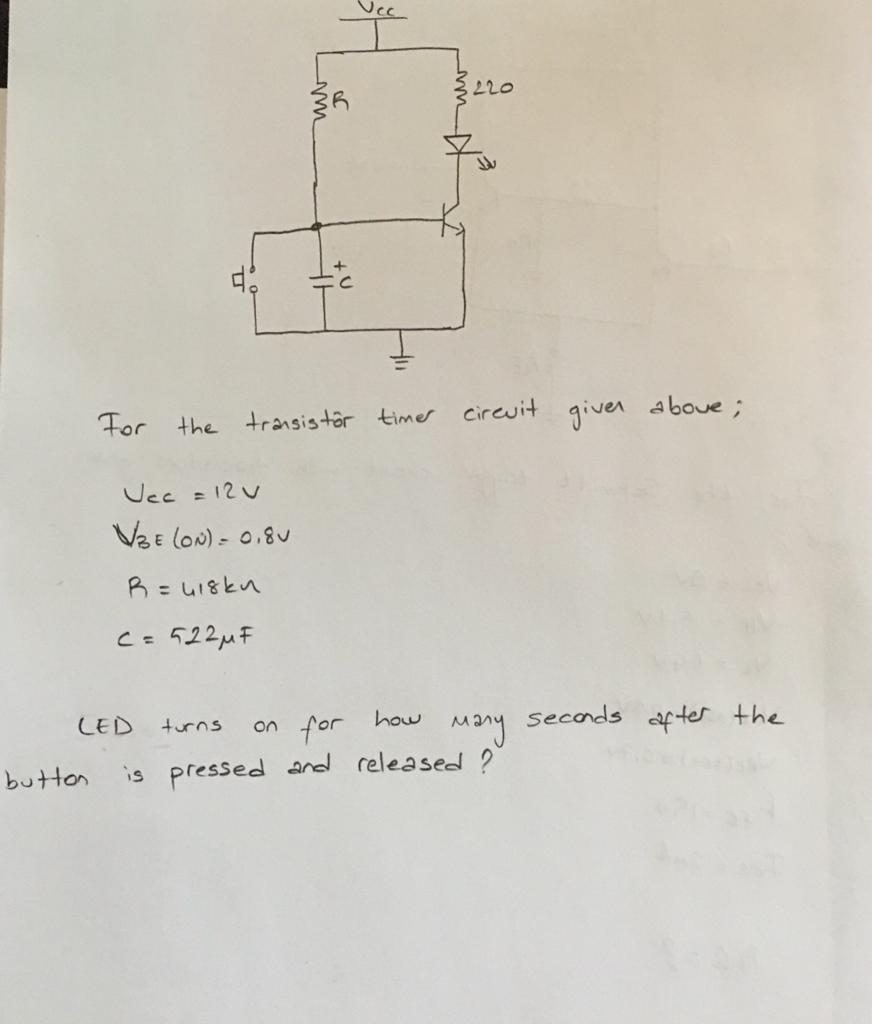 Vcc
R
220
+
C
For the transistör timer circuit given above;
Vcc = 12V
VBE (ON) = 0,8V
R = 418kΩ
C = 522μF
LED turns on for how many seconds after the
button is pressed and released?